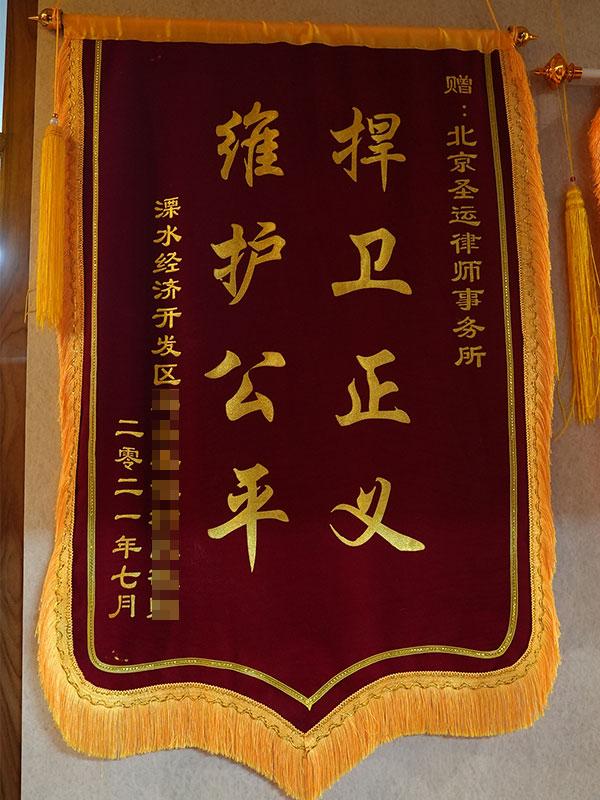 赠:北京圣运律师事务所
捍卫正义
维护公平
溧水经济开发区
二零二一年七月